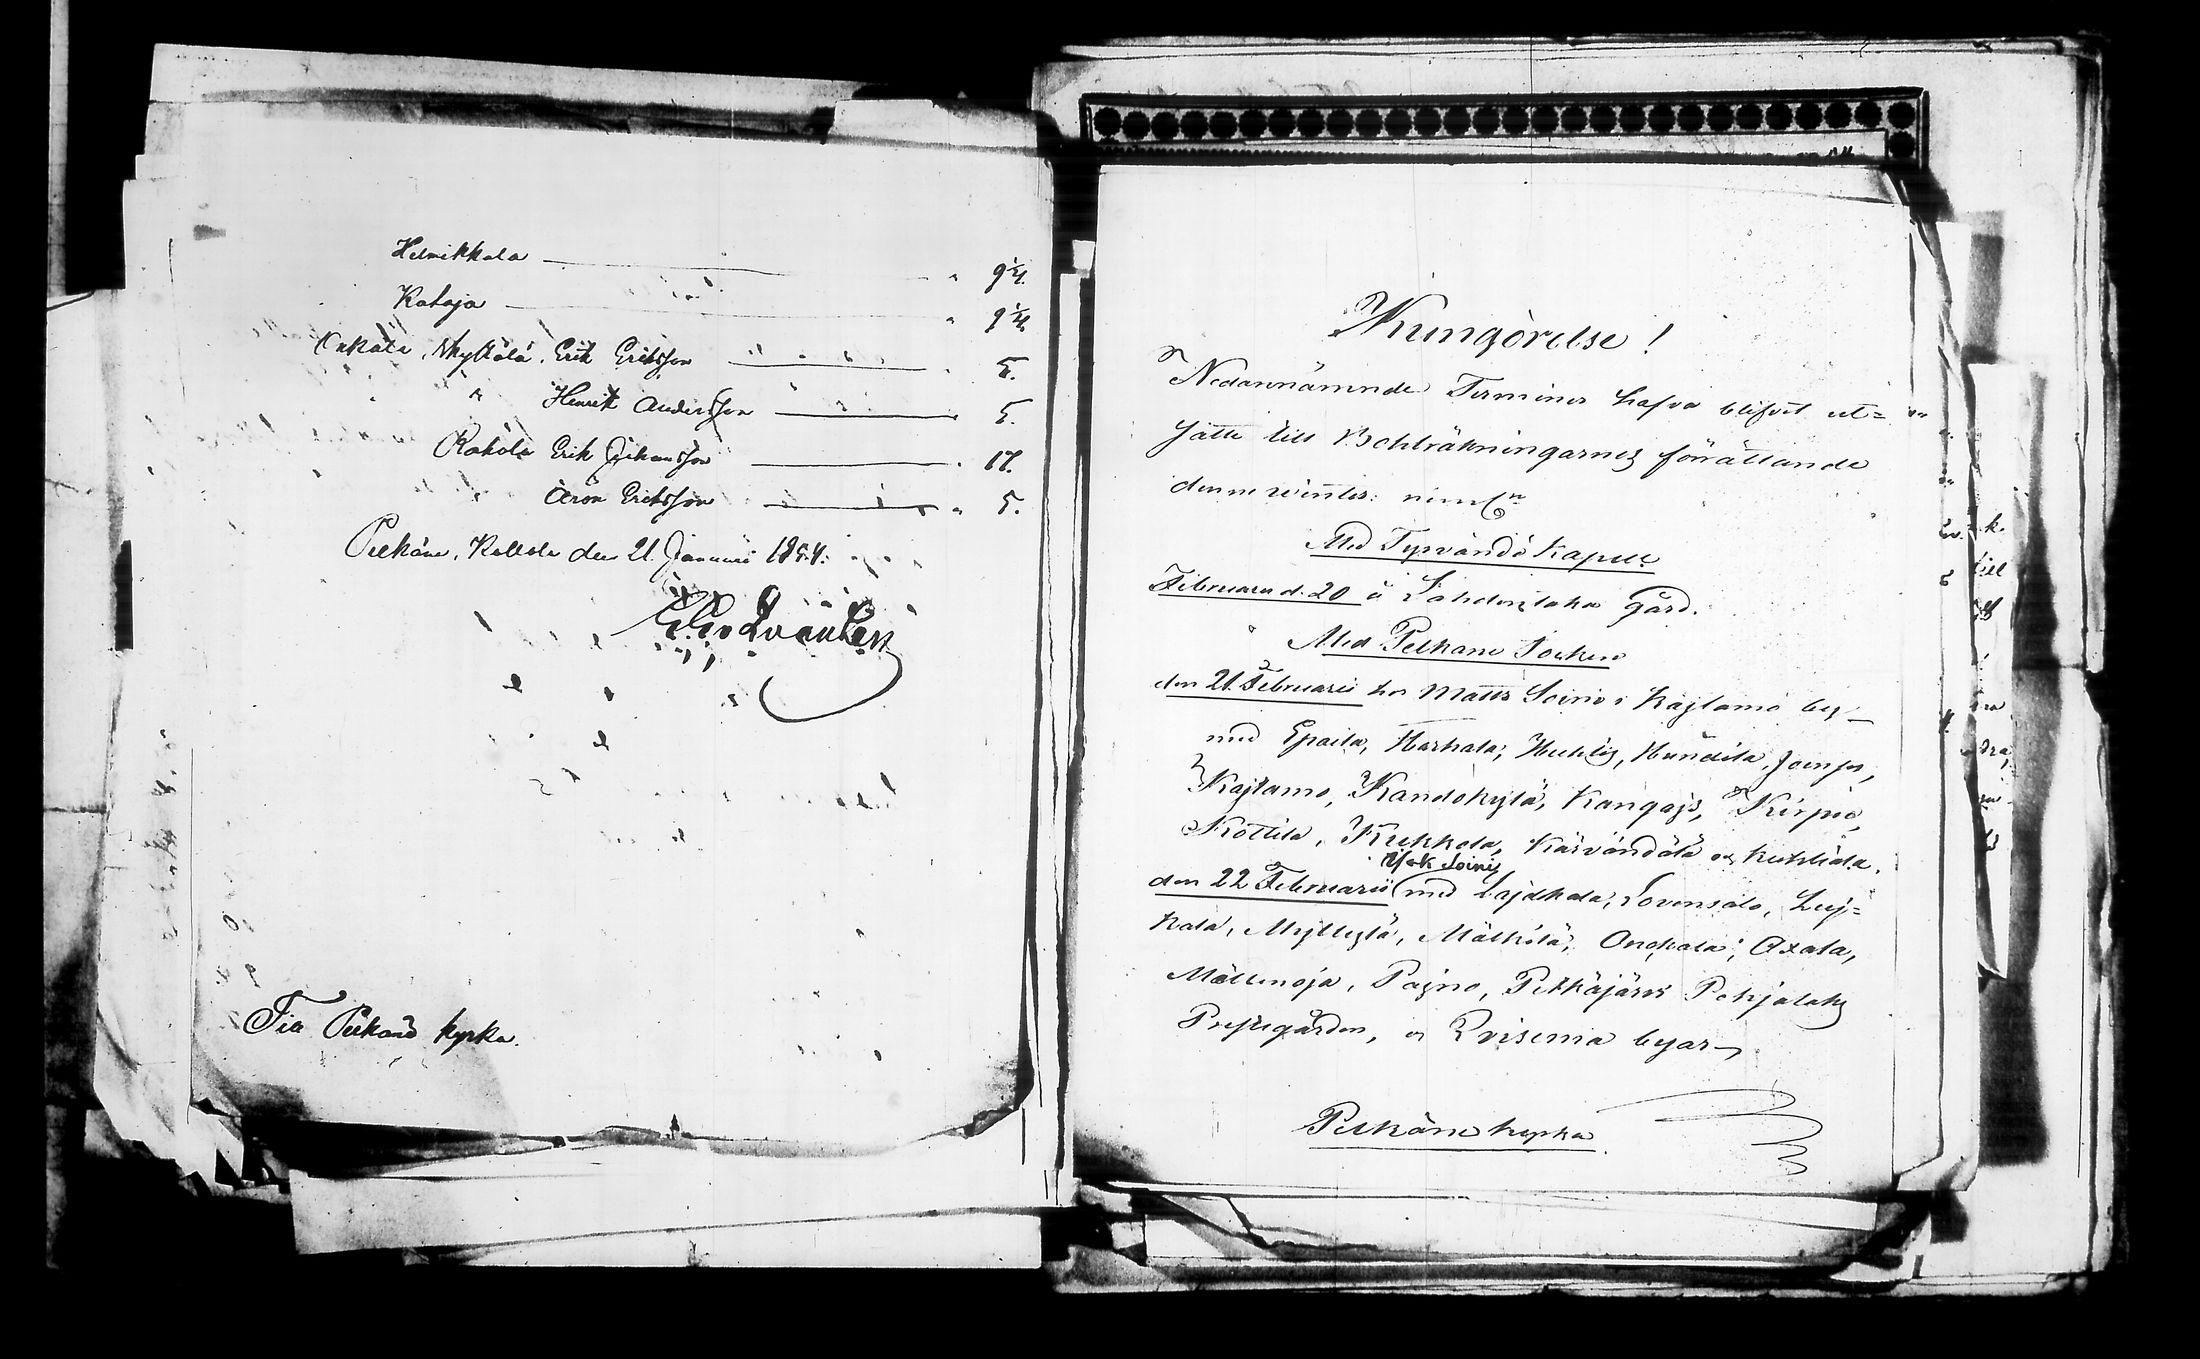 Helmikkala — " 9 1/4.
Kataja — " 9 1/4.
Onkala, Myllölä, Erik Eriksson — " 5.
" Henrik Andersson — " 5.
Rokola Erik Johansson — " 17.
" Aron Eriksson — " 5.
Pelkäne, Kollola den 21 Januari 1854.
Till Pelkäne kyrka.
Kungörelse!
Nedannämnde Terminer hafva blifvit ut=
satte till Bohlräkningarnes förrättande
denne winter: neml:n
Med Tyrvändö Kapell
Februarii d. 20 å Lahdenstaka gård.
Med Pelkäne Socken
den 21 Februarii hos Matts Soini i Kajtamo by
med Epaila, Harhala, Huhtis, Hundila,
Kajtamo, Kandokylä, Kangajs, Kirpio,
Kottila, Kukkola, Kärvändälä och Kuhliala.
Isak Soinis
den 22 Februarii med Lajdkala, Lovensalo, Luj=
kala, Myllylä, Mälkilä, Onckala, Oxala,
Mällinoja, Pajno, Pitkäjärvi Pohjalaks
Prestgården, och Qvisema byar
Pelkäne kyrka